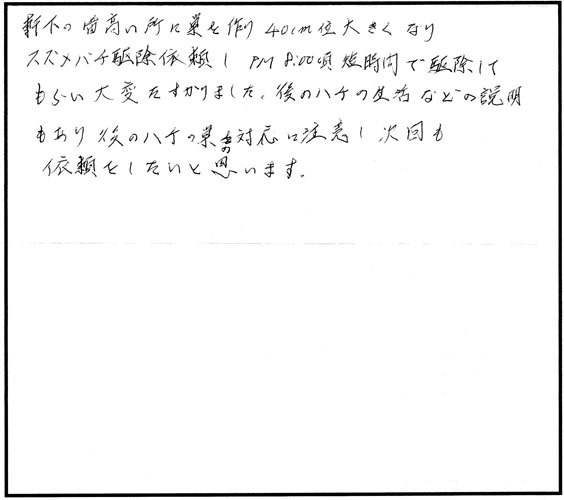 軒下の一番高い所に巣を作り 40cm位大きくなり
スズメバチ駆除依頼し PM 8:00頃 短時間で駆除して
もらい 大変たすかりました。後のハチの生活などの説明
もあり 後のハチの巣 対応に注意し 次回も
依頼をしたいと思います。